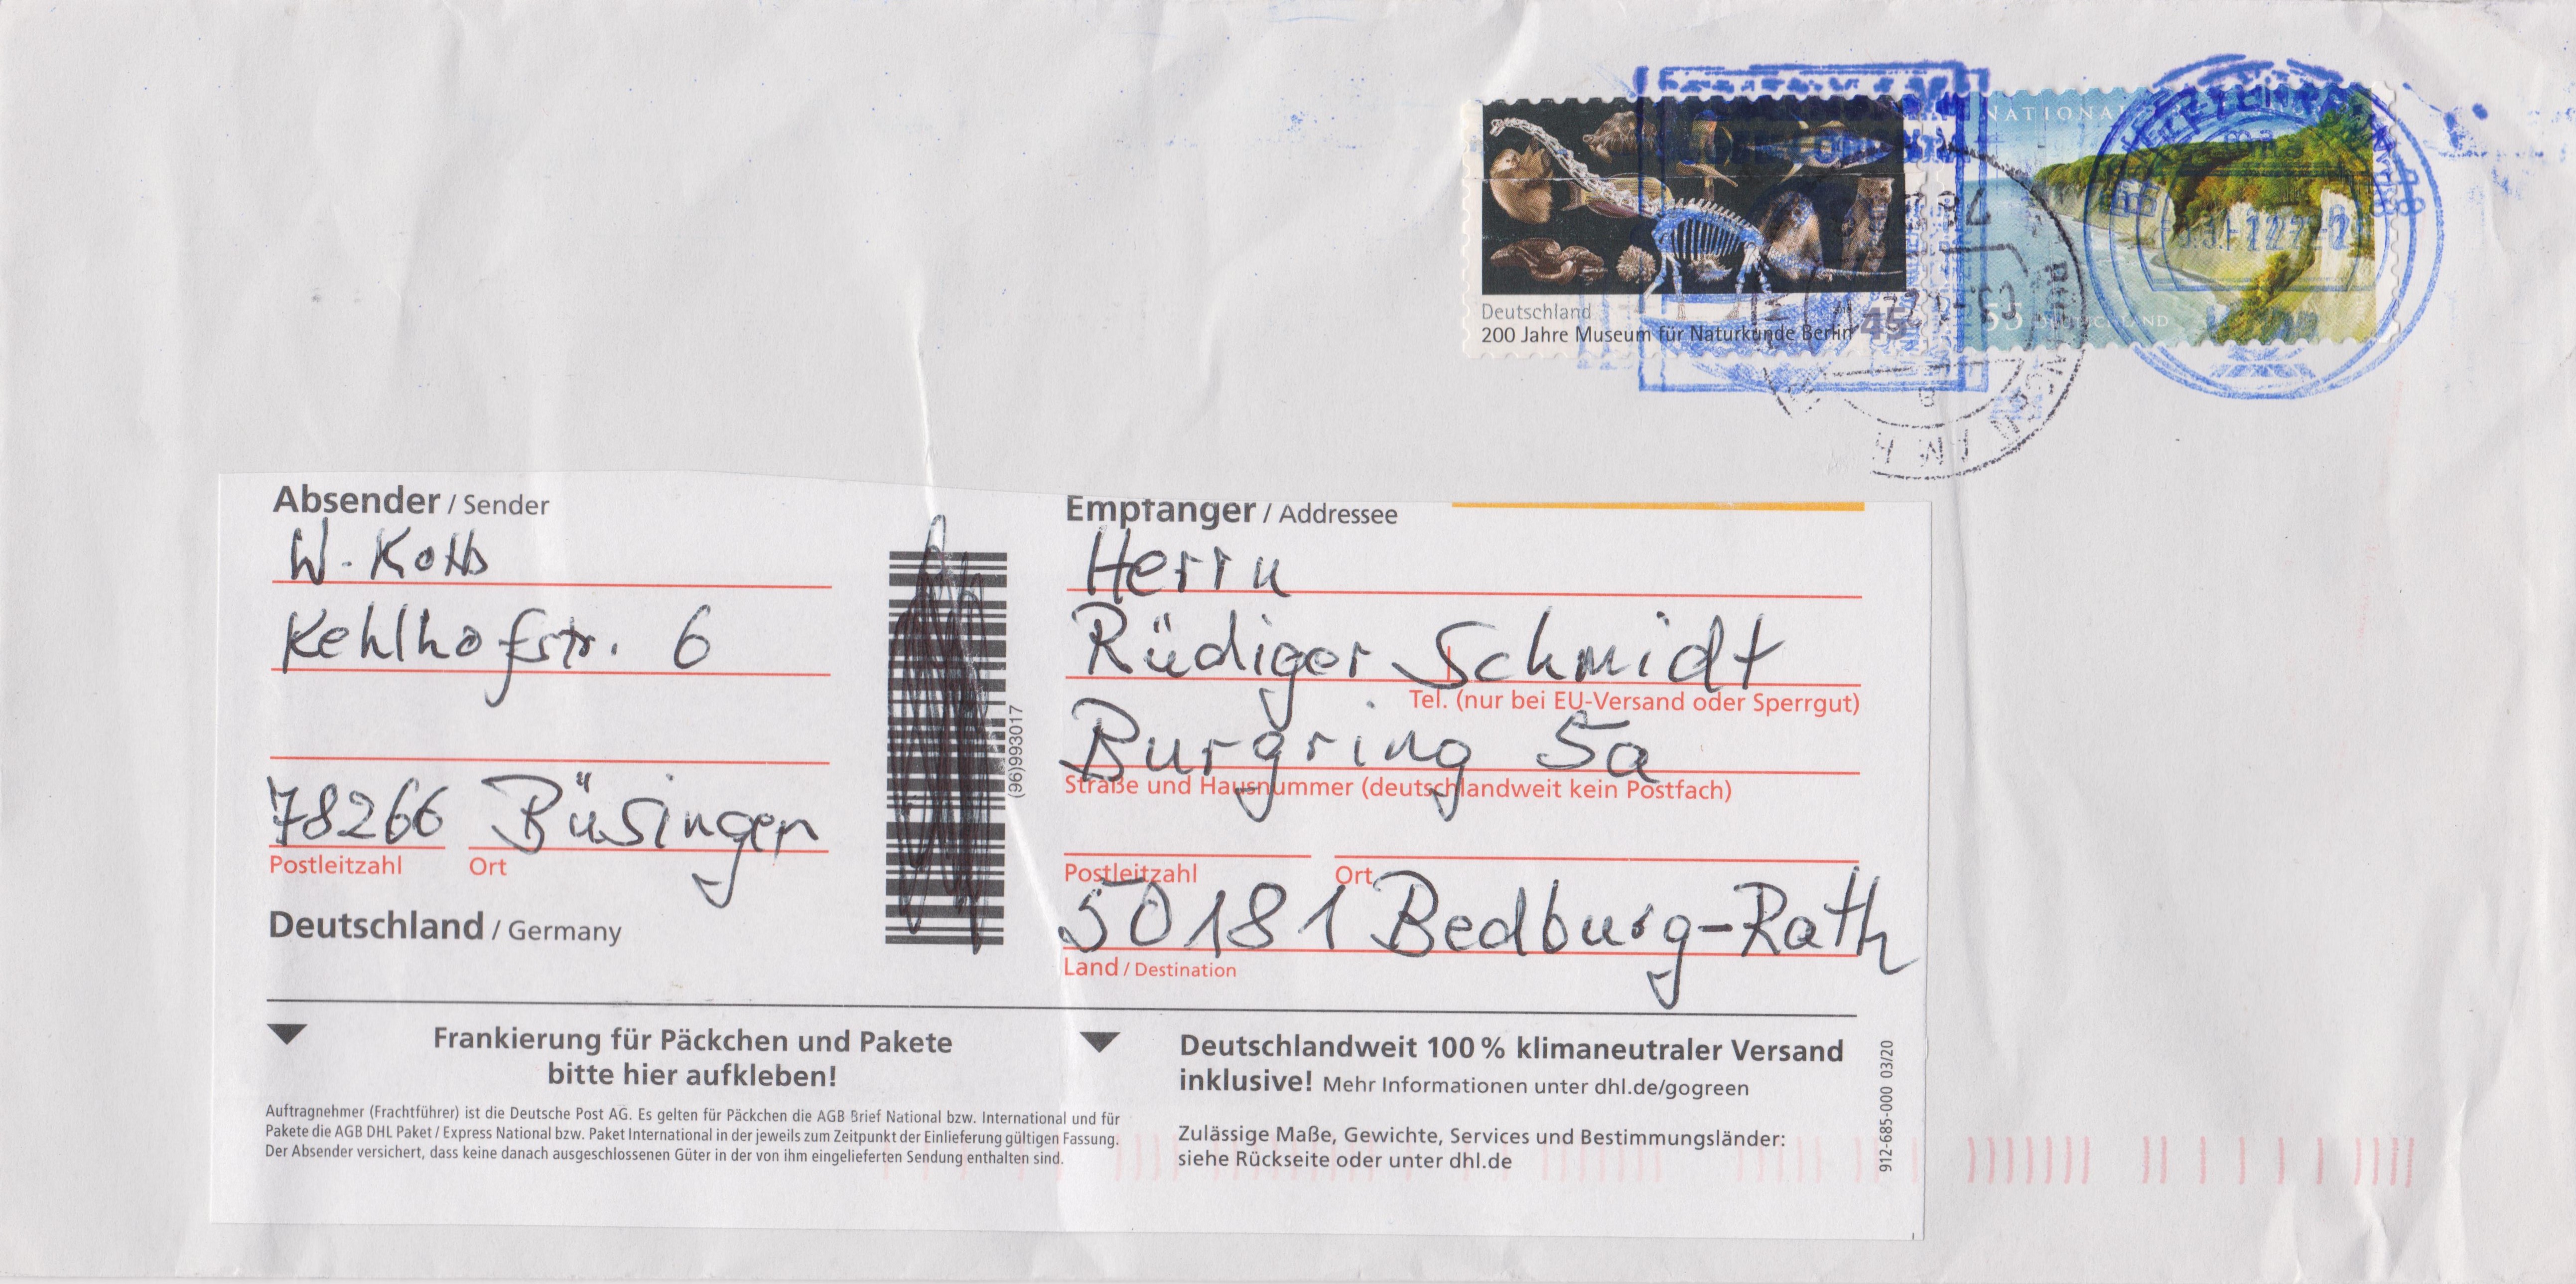 NATIONAL
Deutschland
200 Jahre Museum für Naturkunde Berlin
45
55 DEUTSCHLAND
BRIEFZENTRUM
Absender / Sender
W. Kotts
Kehlhofstr. 6
78266 Büsingen
Postleitzahl Ort
Deutschland / Germany
(96)993017
Empfänger / Addressee
Herrn
Rüdiger Schmidt
Tel. (nur bei EU-Versand oder Sperrgut)
Burgring 5a
Straße und Hausnummer (deutschlandweit kein Postfach)
Postleitzahl Ort
50181 Bedburg-Rath
Land / Destination
Frankierung für Päckchen und Pakete
bitte hier aufkleben!
Auftragnehmer (Frachtführer) ist die Deutsche Post AG. Es gelten für Päckchen die AGB Brief National bzw. International und für
Pakete die AGB DHL Paket / Express National bzw. Paket International in der jeweils zum Zeitpunkt der Einlieferung gültigen Fassung.
Der Absender versichert, dass keine danach ausgeschlossenen Güter in der von ihm eingelieferten Sendung enthalten sind.
Deutschlandweit 100 % klimaneutraler Versand
inklusive! Mehr Informationen unter dhl.de/gogreen
Zulässige Maße, Gewichte, Services und Bestimmungsländer:
siehe Rückseite oder unter dhl.de
912-685-000 03/20